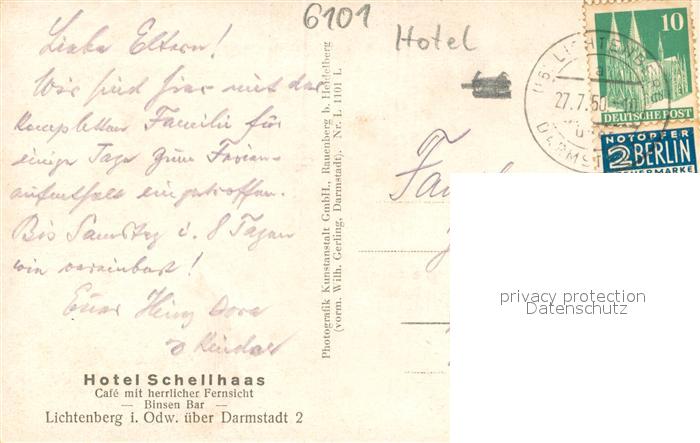 6101
Hotel
Liebe Eltern!
Wir sind hier mit der
kompletten Familie für
einige Tage zum Ferien-
aufenthalt eingetroffen.
Bis Samstag i. 8 Tagen
wie vereinbart!
Euer Heinz Dora
Kinder
Hotel Schellhaas
Café mit herrlicher Fernsicht
— Binsen Bar —
Lichtenberg i. Odw. über Darmstadt 2
Photografik Kunstanstalt GmbH., Rauenberg b. Heidelberg
(vorm. Wilh. Gerling, Darmstadt). Nr. L 1101 L
10
DEUTSCHE POST
NOTOPFER
2 BERLIN
STEUERMARKE
(16) LICHTENBERG
27.7.50
DARMSTADT
Fam
privacy protection
Datenschutz